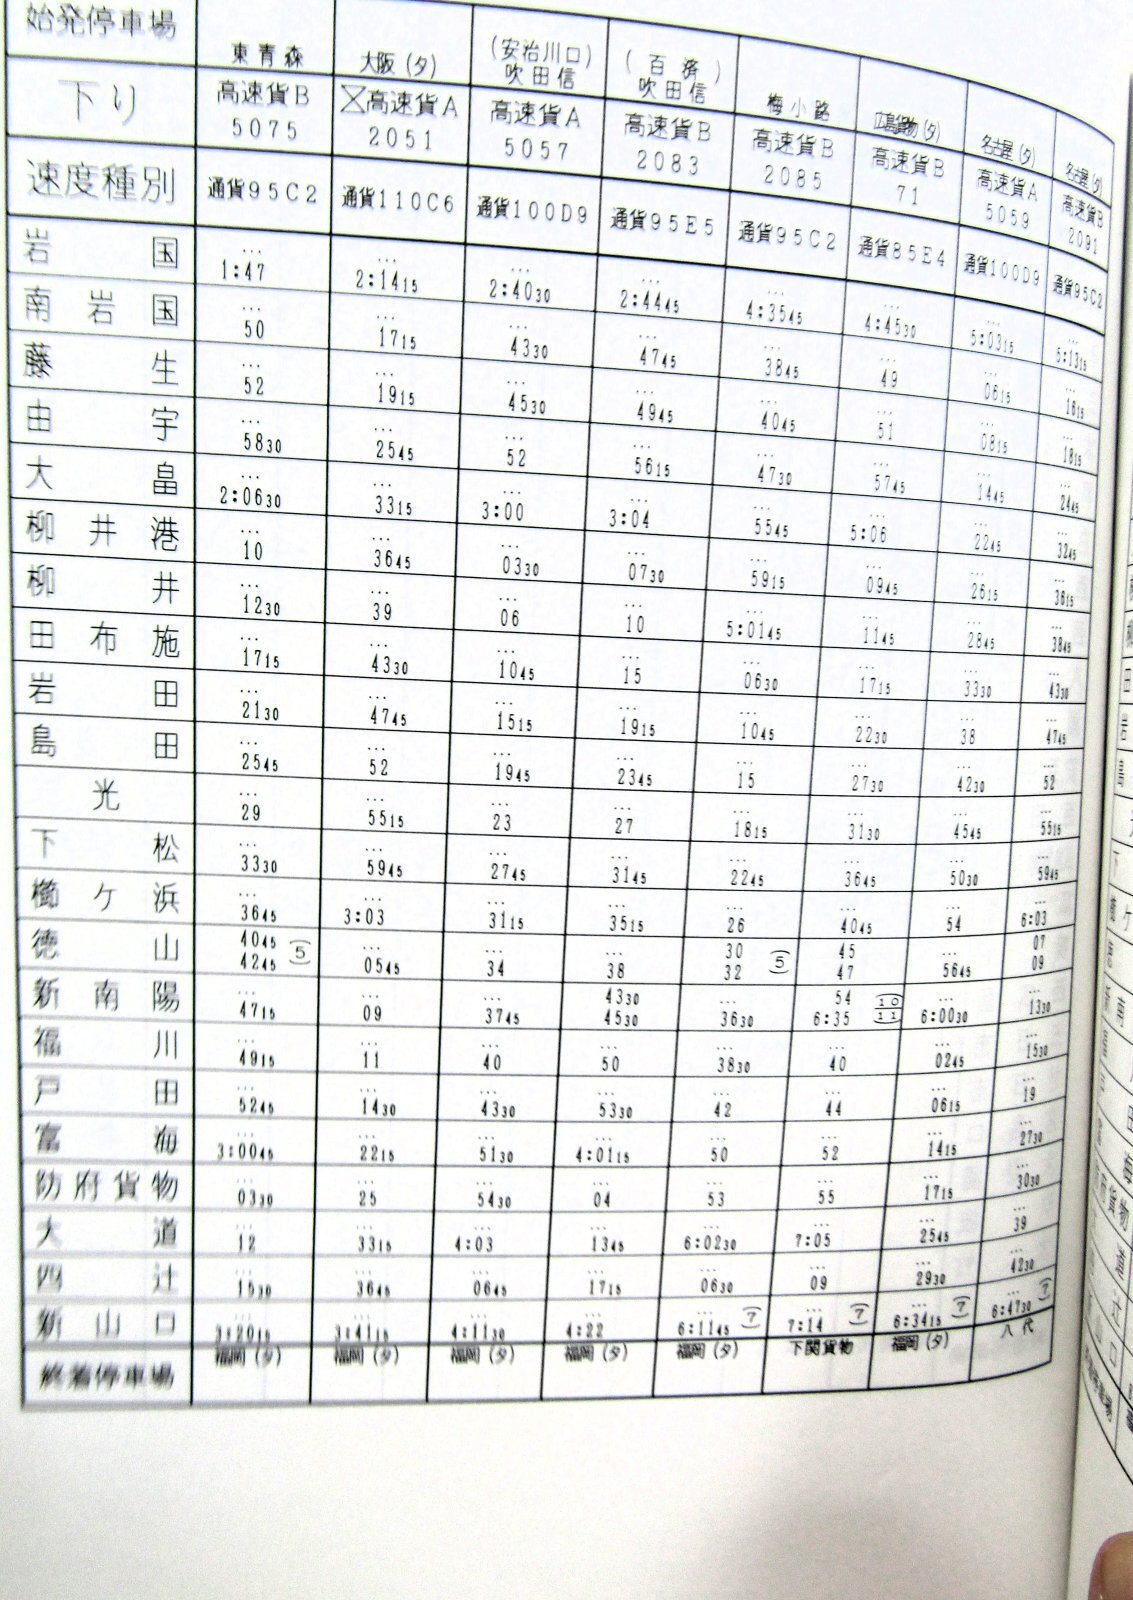 始発停車場 東青森 大阪(タ) (安治川口)吹田信 (百済)吹田信 梅小路 広島貨物(タ) 名古屋(タ) 名古屋(タ)
下り 高速貨B 5075 高速貨A 2051 高速貨A 5057 高速貨B 2083 高速貨B 2085 高速貨B 71 高速貨A 5059 高速貨B 2091
速度種別 通貨95C2 通貨110C6 通貨100D9 通貨95E5 通貨95C2 通貨85E4 通貨100D9 通貨95C2
岩国 … 1:47 … 2:1415 … 2:4030 … 2:4445 … 4:3545 … 4:4530 … 5:0315 … 5:1315
南岩国 … 50 … 1715 … 4330 … 4745 … 3845 … 49 … 0615 … 1615
藤生 … 52 … 1915 … 4530 … 4945 … 4045 … 51 … 0815 … 1815
由宇 … 5830 … 2545 … 52 … 5615 … 4730 … 5745 … 1445 … 2445
大畠 … 2:0630 … 3315 … 3:00 … 3:04 … 5545 … 5:06 … 2245 … 3245
柳井港 … 10 … 3645 … 0330 … 0730 … 5915 … 0945 … 2615 … 3615
柳井 … 1230 … 39 … 06 … 10 … 5:0145 … 1145 … 2845 … 3845
田布施 … 1715 … 4330 … 1045 … 15 … 0630 … 1715 … 3330 … 4330
岩田 … 2130 … 4745 … 1515 … 1915 … 1045 … 2230 … 38 … 4745
島田 … 2545 … 52 … 1945 … 2345 … 15 … 2730 … 4230 … 52
光 … 29 … 5515 … 23 … 27 … 1815 … 3130 … 4545 … 5515
下松 … 3330 … 5945 … 2745 … 3145 … 2245 … 3645 … 5030 … 5945
櫛ケ浜 … 3645 … 3:03 … 3115 … 3515 … 26 … 4045 … 54 … 6:03
徳山 4045 4245 (5) … 0545 … 34 … 38 30 32 (5) 45 47 … 5645 07 09
新南陽 … 4715 … 09 … 3745 4330 4530 … 3630 54 6:35 (10 11) … 6:0030 … 1330
福川 … 4915 … 11 … 40 … 50 … 3830 … 40 … 0245 … 1530
戸田 … 5245 … 1430 … 4330 … 5330 … 42 … 44 … 0615 … 19
富海 … 3:0045 … 2215 … 5130 … 4:0115 … 50 … 52 … 1415 … 2730
防府貨物 … 0330 … 25 … 5430 … 04 … 53 … 55 … 1715 … 3030
大道 … 12 … 3315 … 4:03 … 1345 … 6:0230 … 7:05 … 2545 … 39
四辻 … 1530 … 3645 … 0645 … 1715 … 0630 … 09 … 2930 … 4230
新山口 … 3:2015 … 3:4115 … 4:1130 … 4:22 … 6:1145 (7) … 7:14 (7) … 6:3415 (7) … 6:4730 (7)
終着停車場 福岡(タ) 福岡(タ) 福岡(タ) 福岡(タ) 福岡(タ) 下関貨物 福岡(タ) 八代